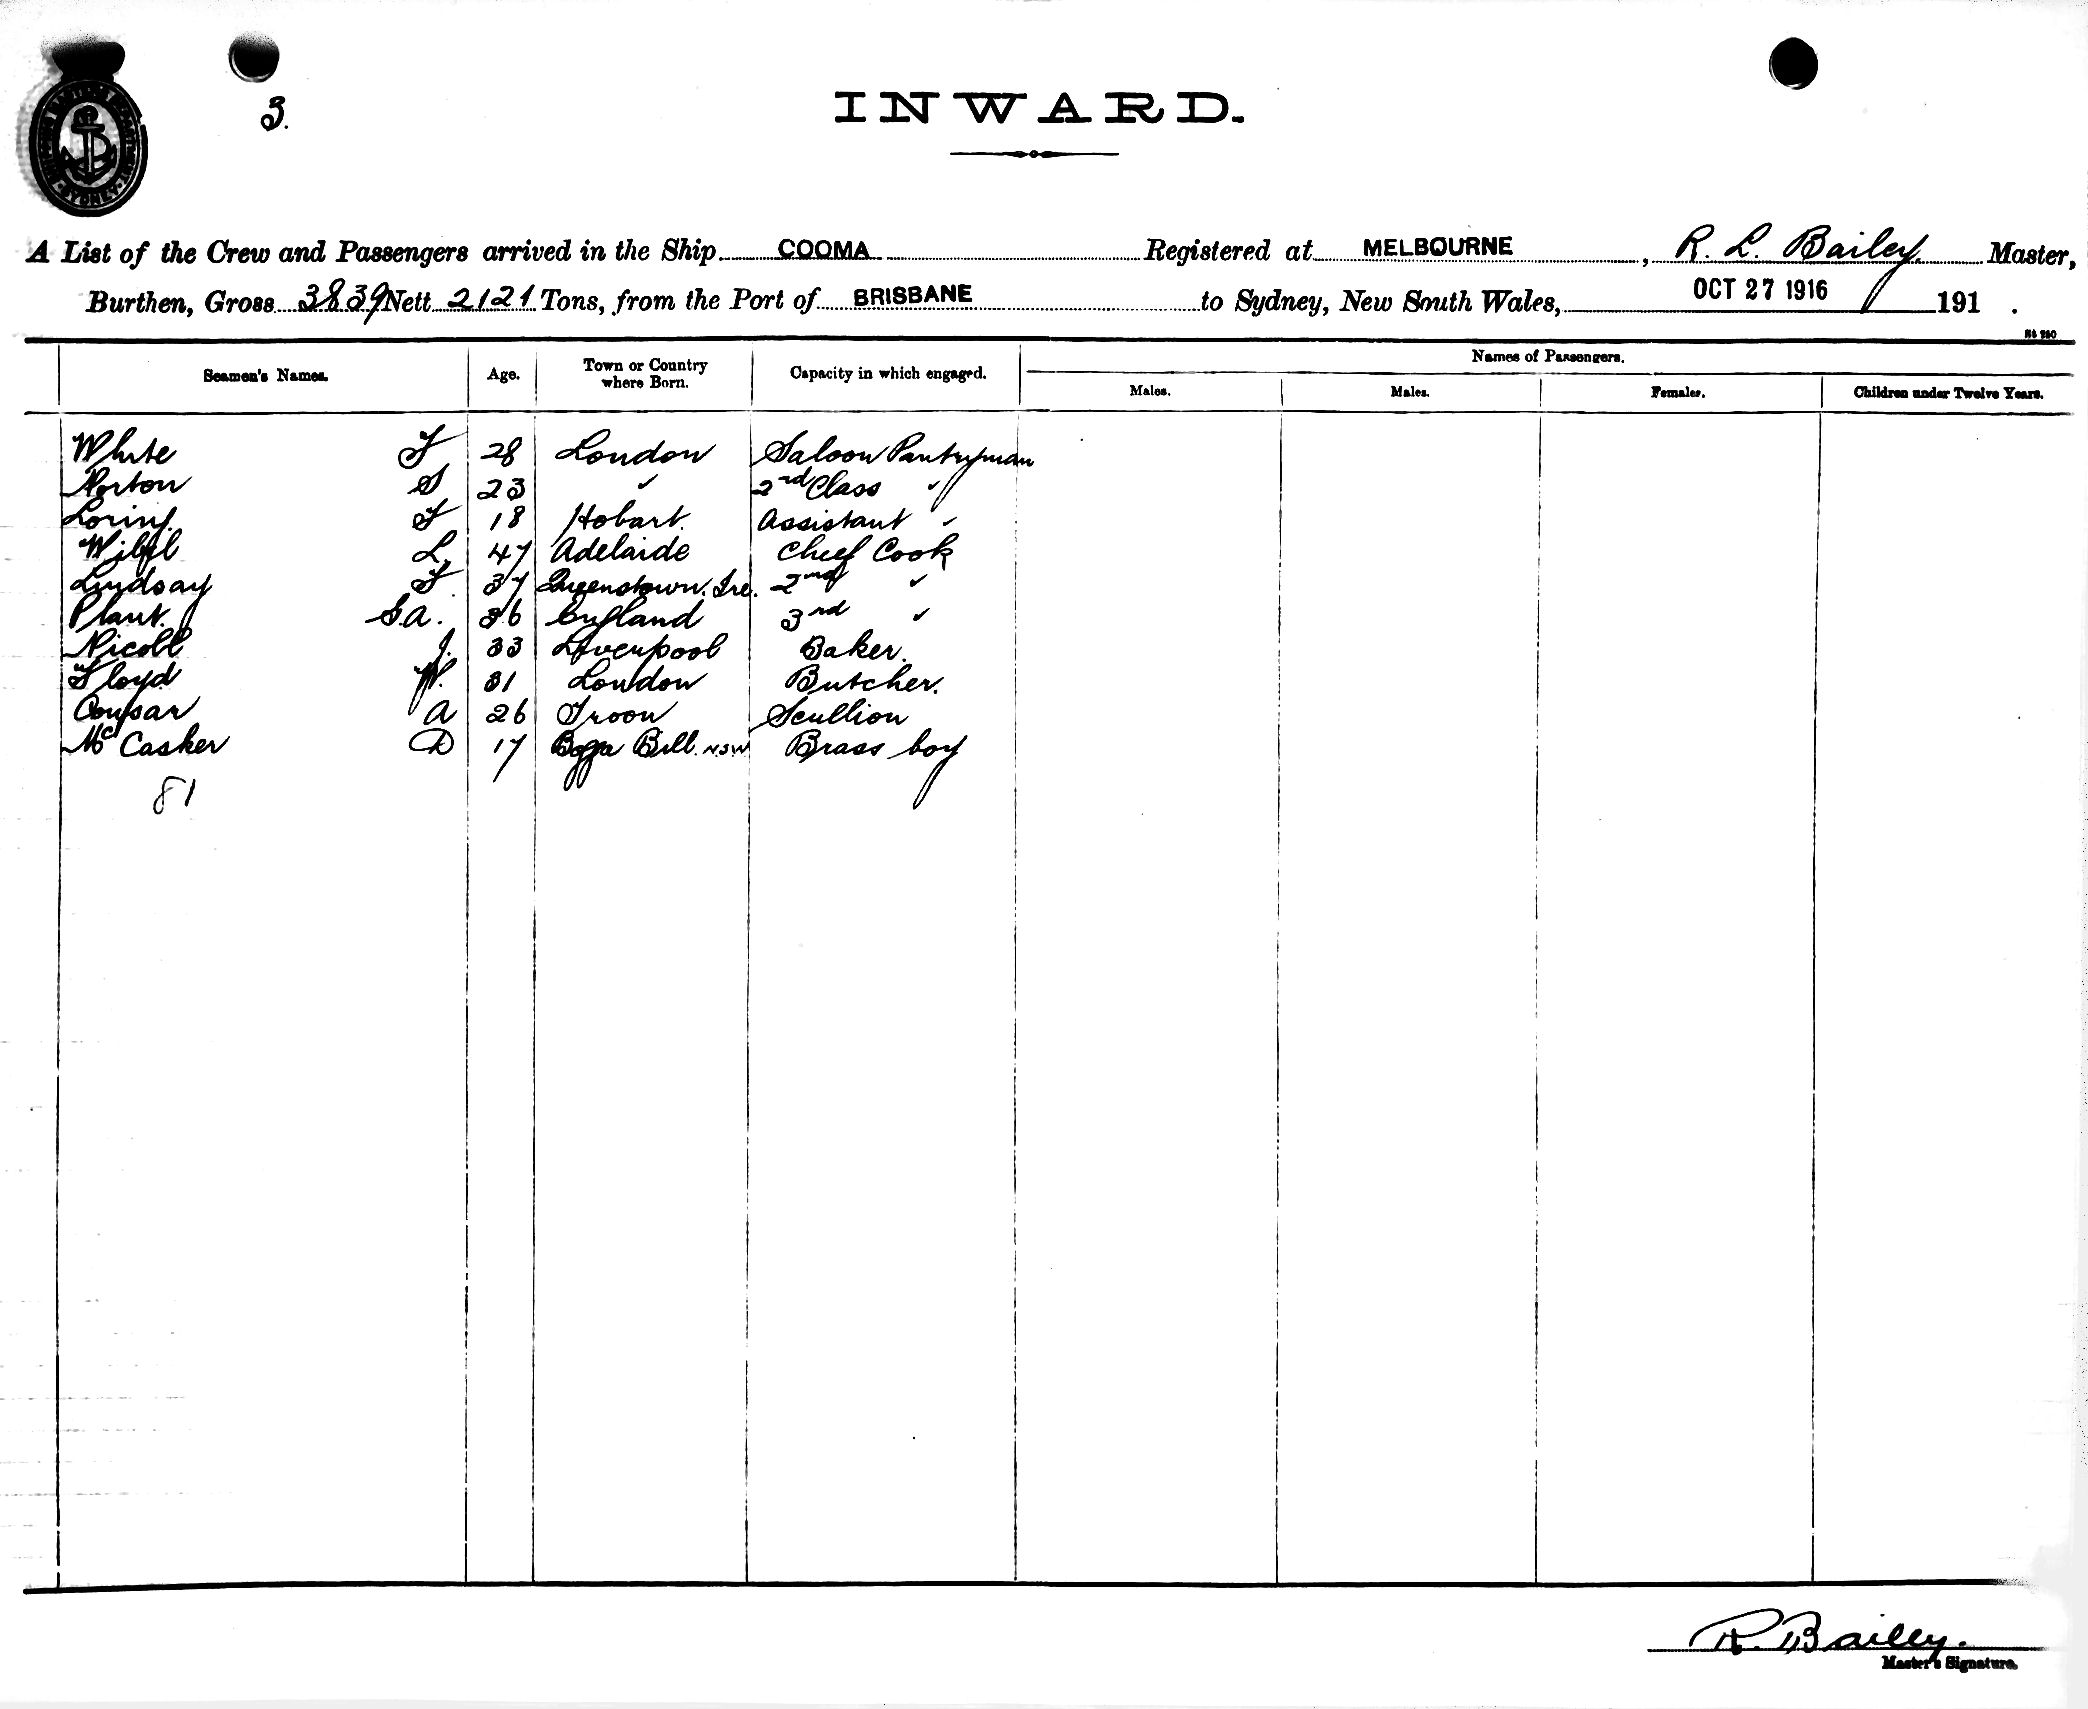 3.
INWARD.
A List of the Crew and Passengers arrived in the Ship COOMA Registered at MELBOURNE, R. L. Bailey Master,
Burthen, Gross 3839 Nett 2121 Tons, from the Port of BRISBANE to Sydney, New South Wales, OCT 27 1916 191 .
Seamen's Names. Age. Town or Country where Born. Capacity in which engaged. Names of Passengers.
Males. Males. Females. Children under Twelve Years.
White F 28 London Saloon Pantryman
Norton S 23 " 2nd Class "
Loring. F 18 Hobart. Assistant "
L. 47 Adelaide Chief Cook
Lindsay F. 37 Queenstown. Ire. 2nd "
Plant. G.A. 36 England 3rd "
Nicoll J. 33 Liverpool Baker.
Floyd W. 31 London Butcher.
Cousar A 26 Troon Scullion
McCasker D 17 Bogga Bill. N.S.W Brass boy
81
R. Bailey.
Master's Signature.